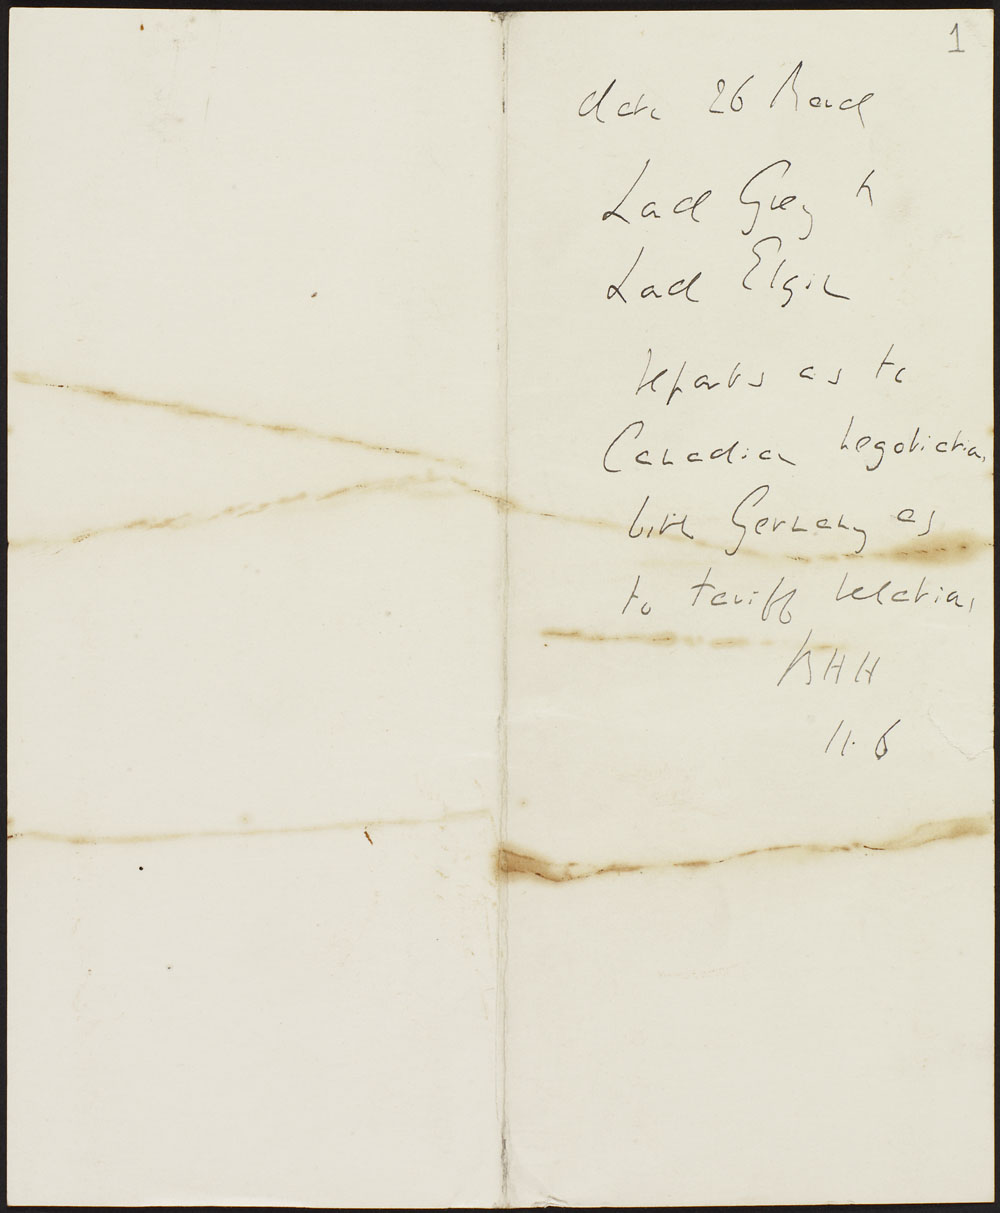 1
date 26 March
Lord Grey to
Lord Elgin
reports as to
Canadian negotiations
with Germany as
to tariff relations
HH
11.6